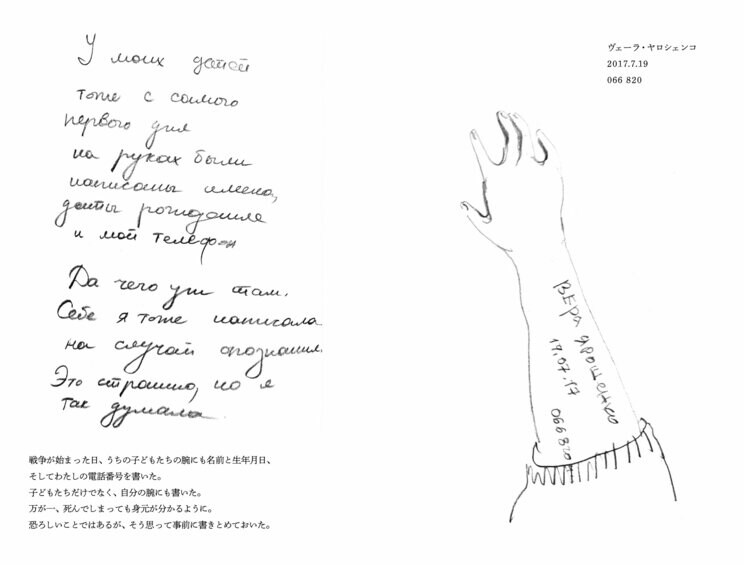 У моих детей
тоже с самого
первого дня
на руках были
написаны имена,
даты рождения
и мой телефон
Да чего уж там.
Себе я тоже написала
на случай опознания.
Это страшно, но я
так думала.
戦争が始まった日、うちの子どもたちの腕にも名前と生年月日、
そしてわたしの電話番号を書いた。
子どもたちだけでなく、自分の腕にも書いた。
万が一、死んでしまっても身元が分かるように。
恐ろしいことではあるが、そう思って事前に書きとめておいた。
ヴェーラ・ヤロシェンコ
2017.7.19
066 820
ВЕРА ЯРОШЕНКО
19.07.17
066 820